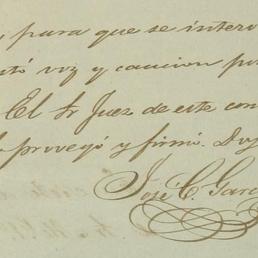 , para que se interv
stó voz y caucion po
El Sr Juez de este con
lo proveyó y firmó. Doy
José C. Garc